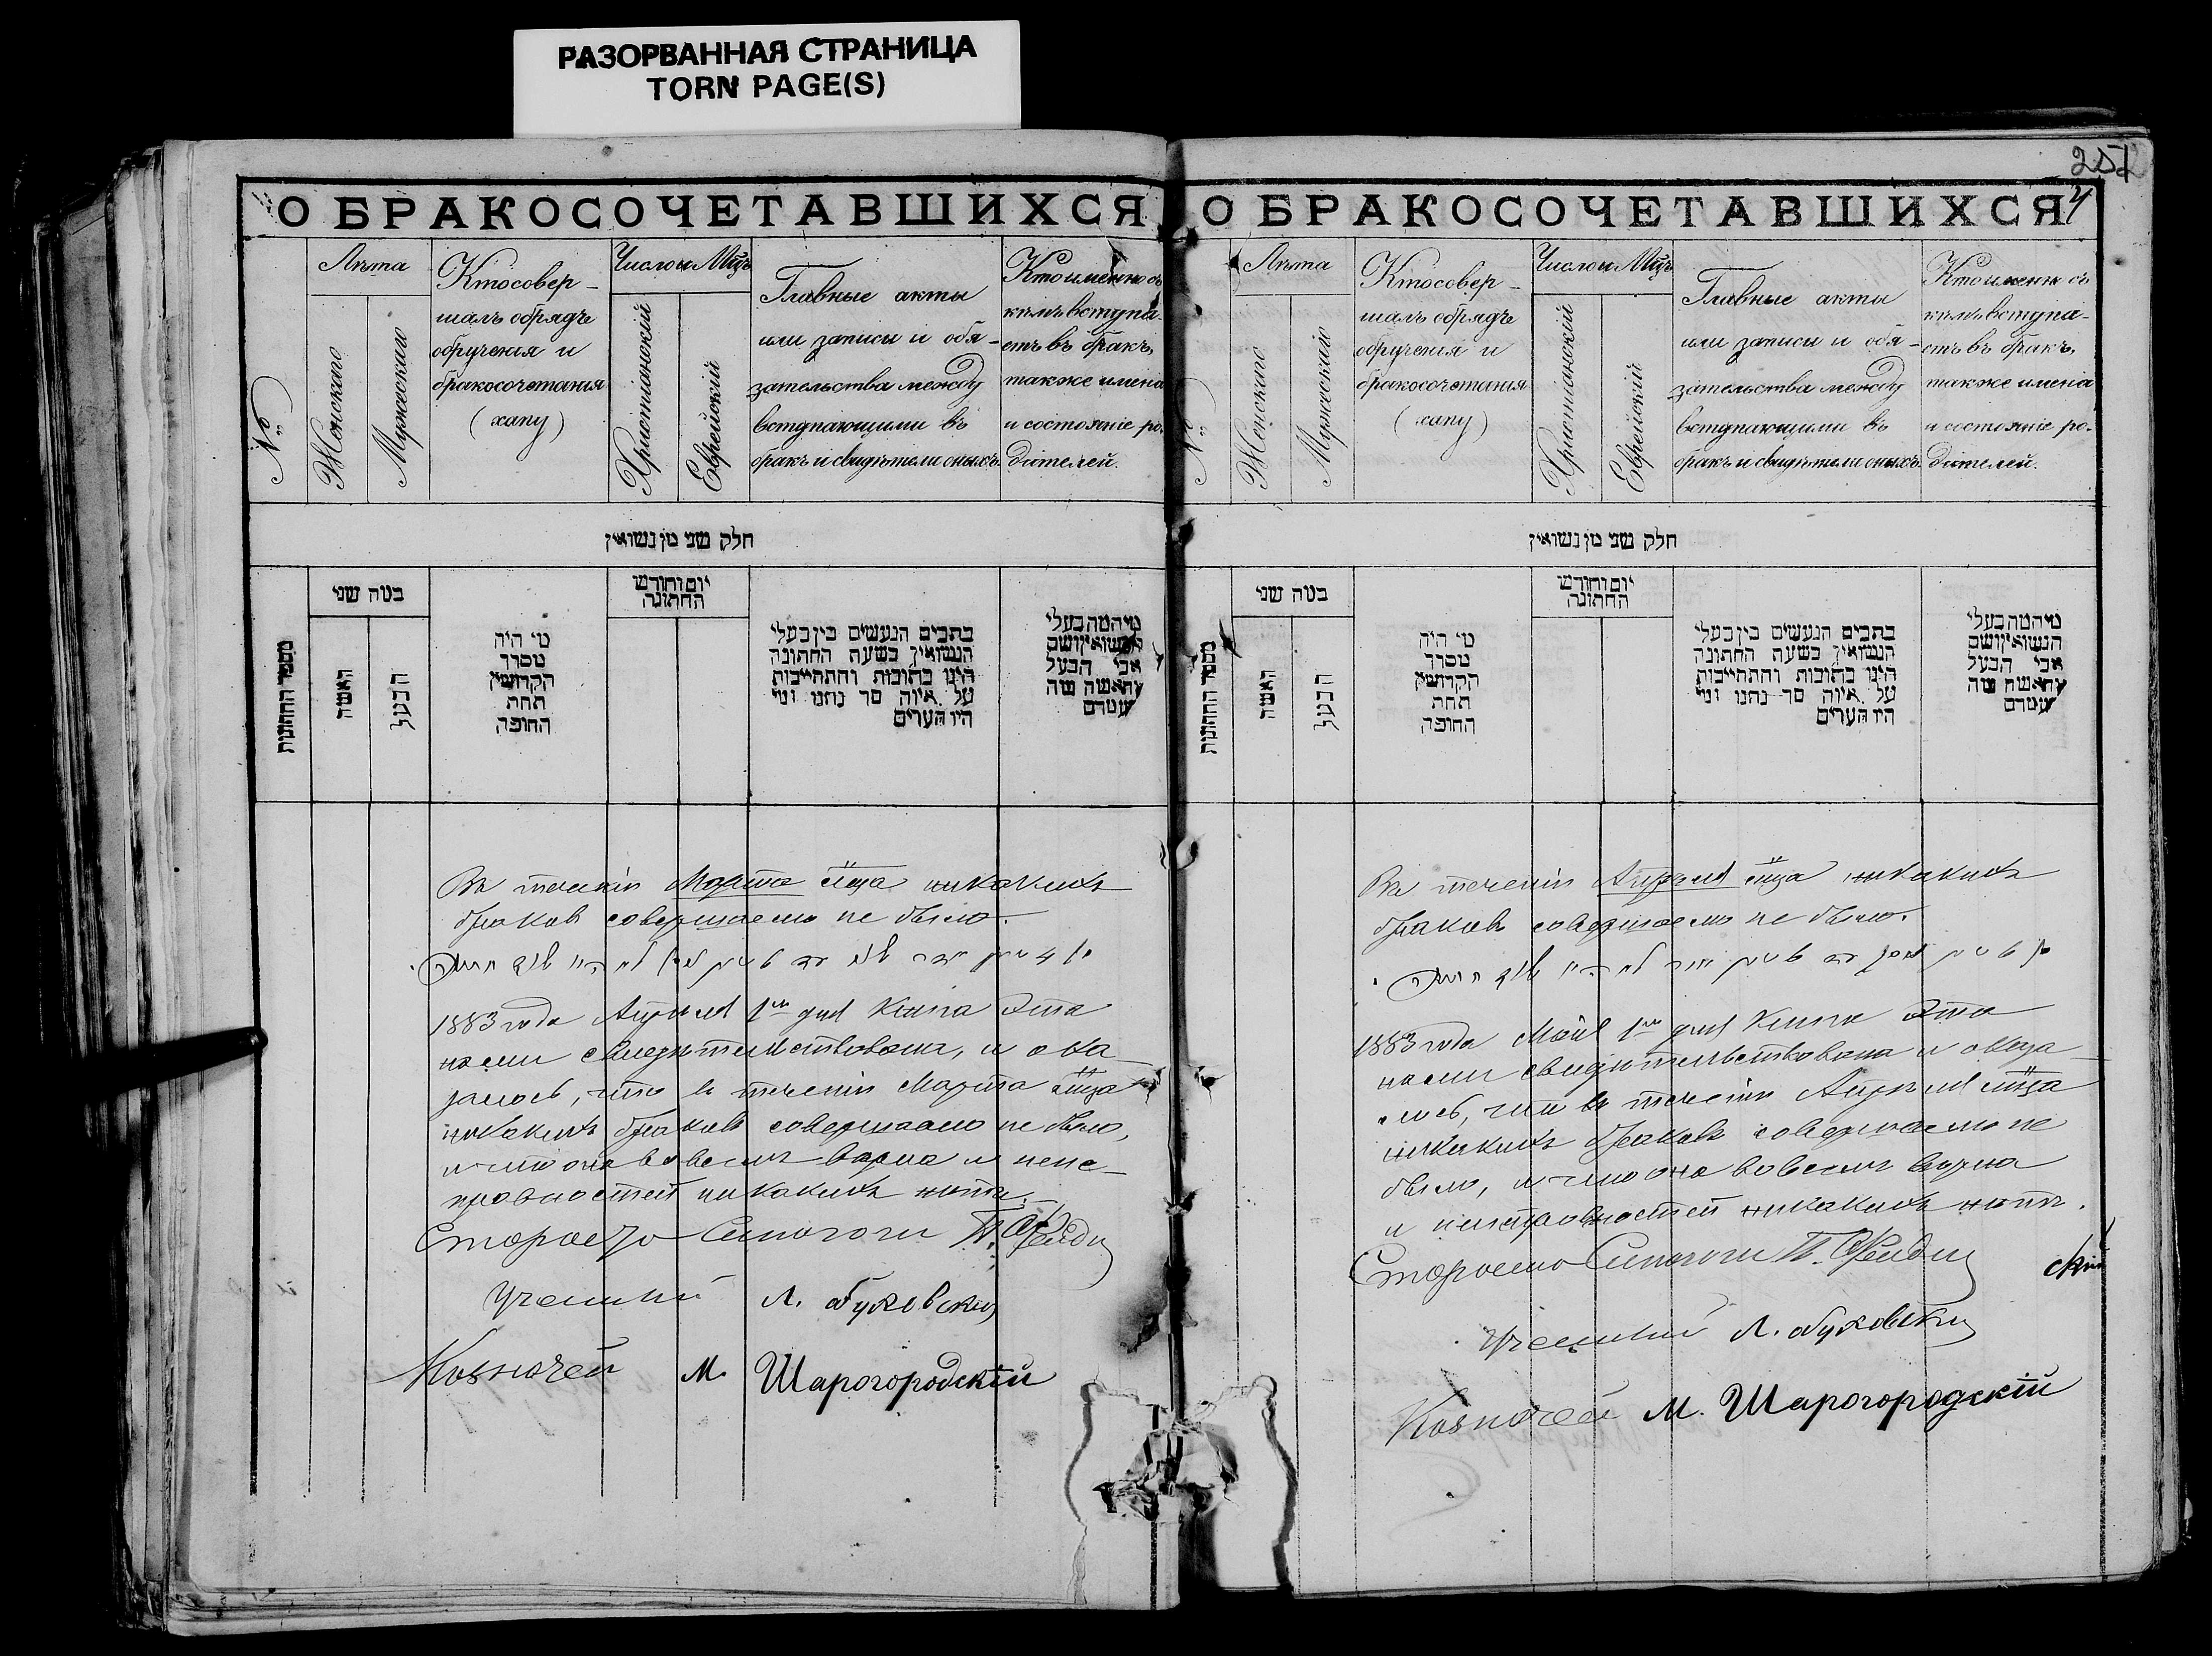 РАЗОРВАННАЯ СТРАНИЦА
TORN PAGE(S)
О БРАКОСОЧЕТАВШИХСЯ
№
Лѣта
Женскаго
Мужескаго
Кто совер-
шалъ обрядъ
обрученія и
бракосочетанія
(хапу)
Число и Мѣцъ
Христіанскій
Еврейскій
Главные акты
или записи и обя-
зательства между
вступающими въ
бракъ и свидѣтели оныхъ.
Кто именно съ
кѣмъ вступа-
етъ въ бракъ,
также имена
и состояніе ро-
дителей.
חלק שני מן נשואין
מספר החתונות
במה שני
האשה
הבעל
מי היה
מסדר
הקדושין
תחת
החופה
יום וחודש
החתונה
כתבים הנעשים בין בעלי
הנשואין בשעת החתונה
היינו כתובות והתחייבות
על איזה סך נתנו ומי
היו העדים
מי המה בעלי
הנשואין ושם
אבי הבעל
והאשה מה
שמם
Въ теченіи Марта мца никакихъ
браковъ совершаемо не было.
1883 года Апрѣля 1го дня Книга эта
нами свидѣтельствована, и ока-
залось, что въ теченіи Марта мца
никакихъ браковъ совершаемо не было,
и что она во всемъ вѣрна и неис-
правностей никакихъ нѣтъ.
Староста Синагоги
Ученый Л. Буховскій
Казначей М. Шарогородскій
251
4
О БРАКОСОЧЕТАВШИХСЯ
№
Лѣта
Женскаго
Мужескаго
Кто совер-
шалъ обрядъ
обрученія и
бракосочетанія
(хапу)
Число и Мѣцъ
Христіанскій
Еврейскій
Главные акты
или записи и обя-
зательства между
вступающими въ
бракъ и свидѣтели оныхъ.
Кто именно съ
кѣмъ вступа-
етъ въ бракъ,
также имена
и состояніе ро-
дителей.
חלק שני מן נשואין
מספר החתונות
במה שני
האשה
הבעל
מי היה
מסדר
הקדושין
תחת
החופה
יום וחודש
החתונה
כתבים הנעשים בין בעלי
הנשואין בשעת החתונה
היינו כתובות והתחייבות
על איזה סך נתנו ומי
היו העדים
מי המה בעלי
הנשואין ושם
אבי הבעל
והאשה מה
שמם
Въ теченіи Апрѣля мца никакихъ
браковъ совершаемо не было.
1883 года Мая 1го дня Книга эта
нами свидѣтельствована и оказа-
лось, что въ теченіи Апрѣля мца
никакихъ браковъ совершаемо не
было, и что она во всемъ вѣрна
и неисправностей никакихъ нѣтъ.
Староста Синагоги
скій
Ученый Л. Буховскій
Казначей М. Шарогородскій